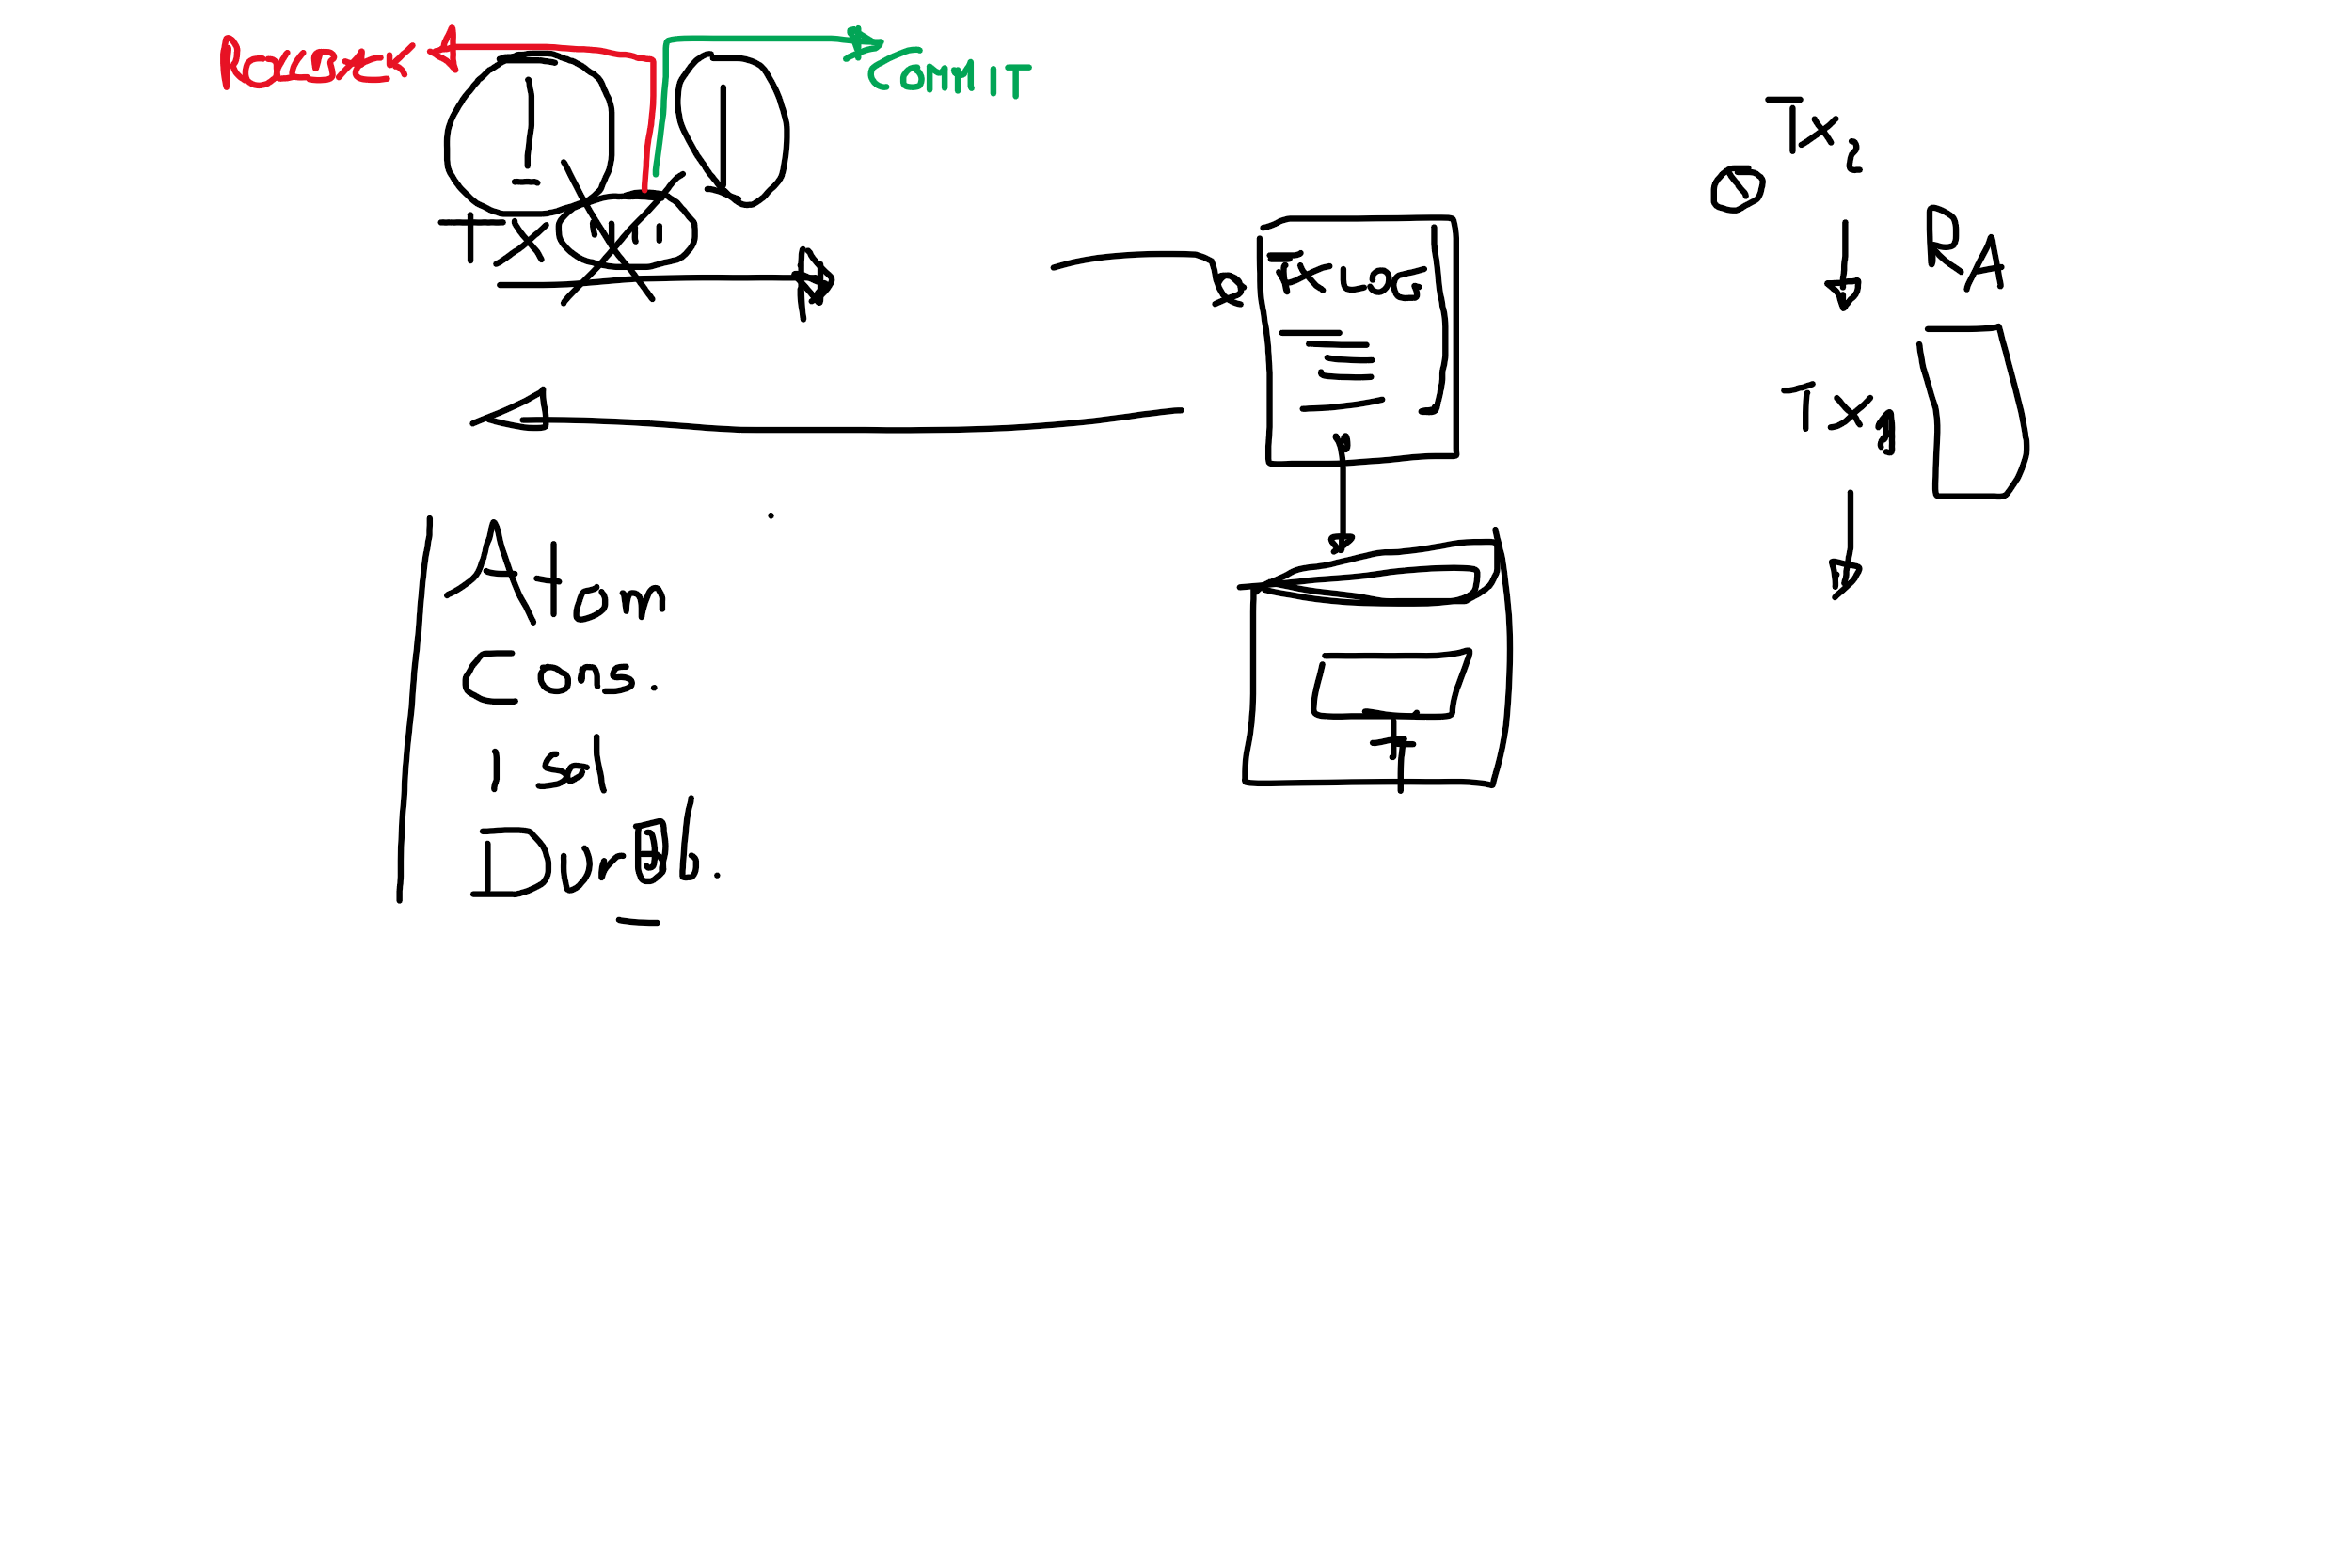 COMMIT
Tx
Tx LOG
Tx2
RA
Tx1
Atom
Cons.
Isol
Durab.